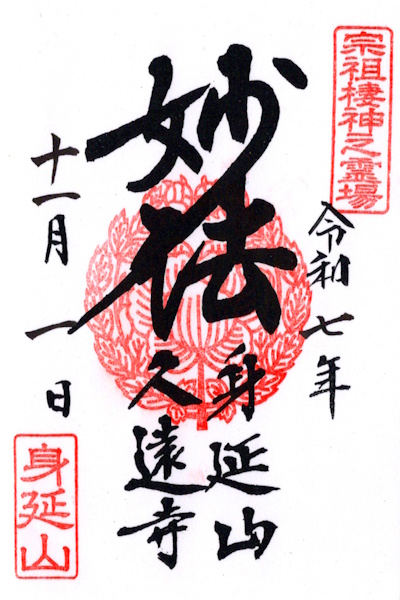 宗祖棲神之霊場
令和七年
妙法
身延山
久遠寺
十一月一日
身延山